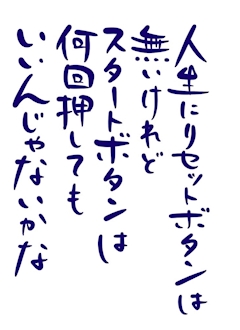 人生にリセットボタンは
無いけれど
スタートボタンは
何回押しても
いいんじゃないかな